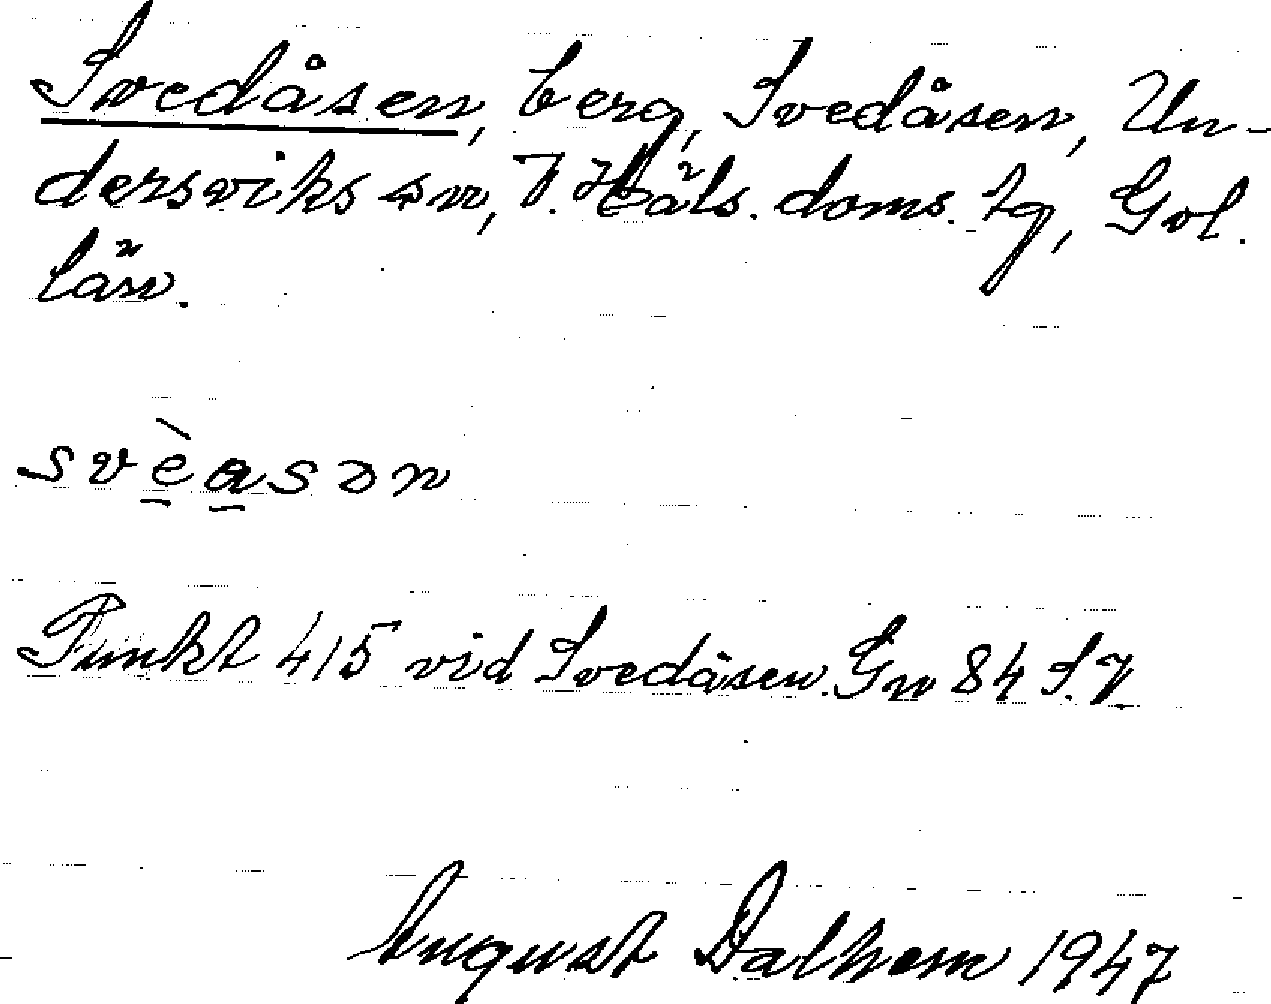 Svedåsen, berg, Svedåsen, Un-
dersviks sn, V. Häls. doms. tg, Gvl.
län.
svèasən
Punkt 415 vid Svedåsen. Gn 84 S.V.
August Dalhem 1947